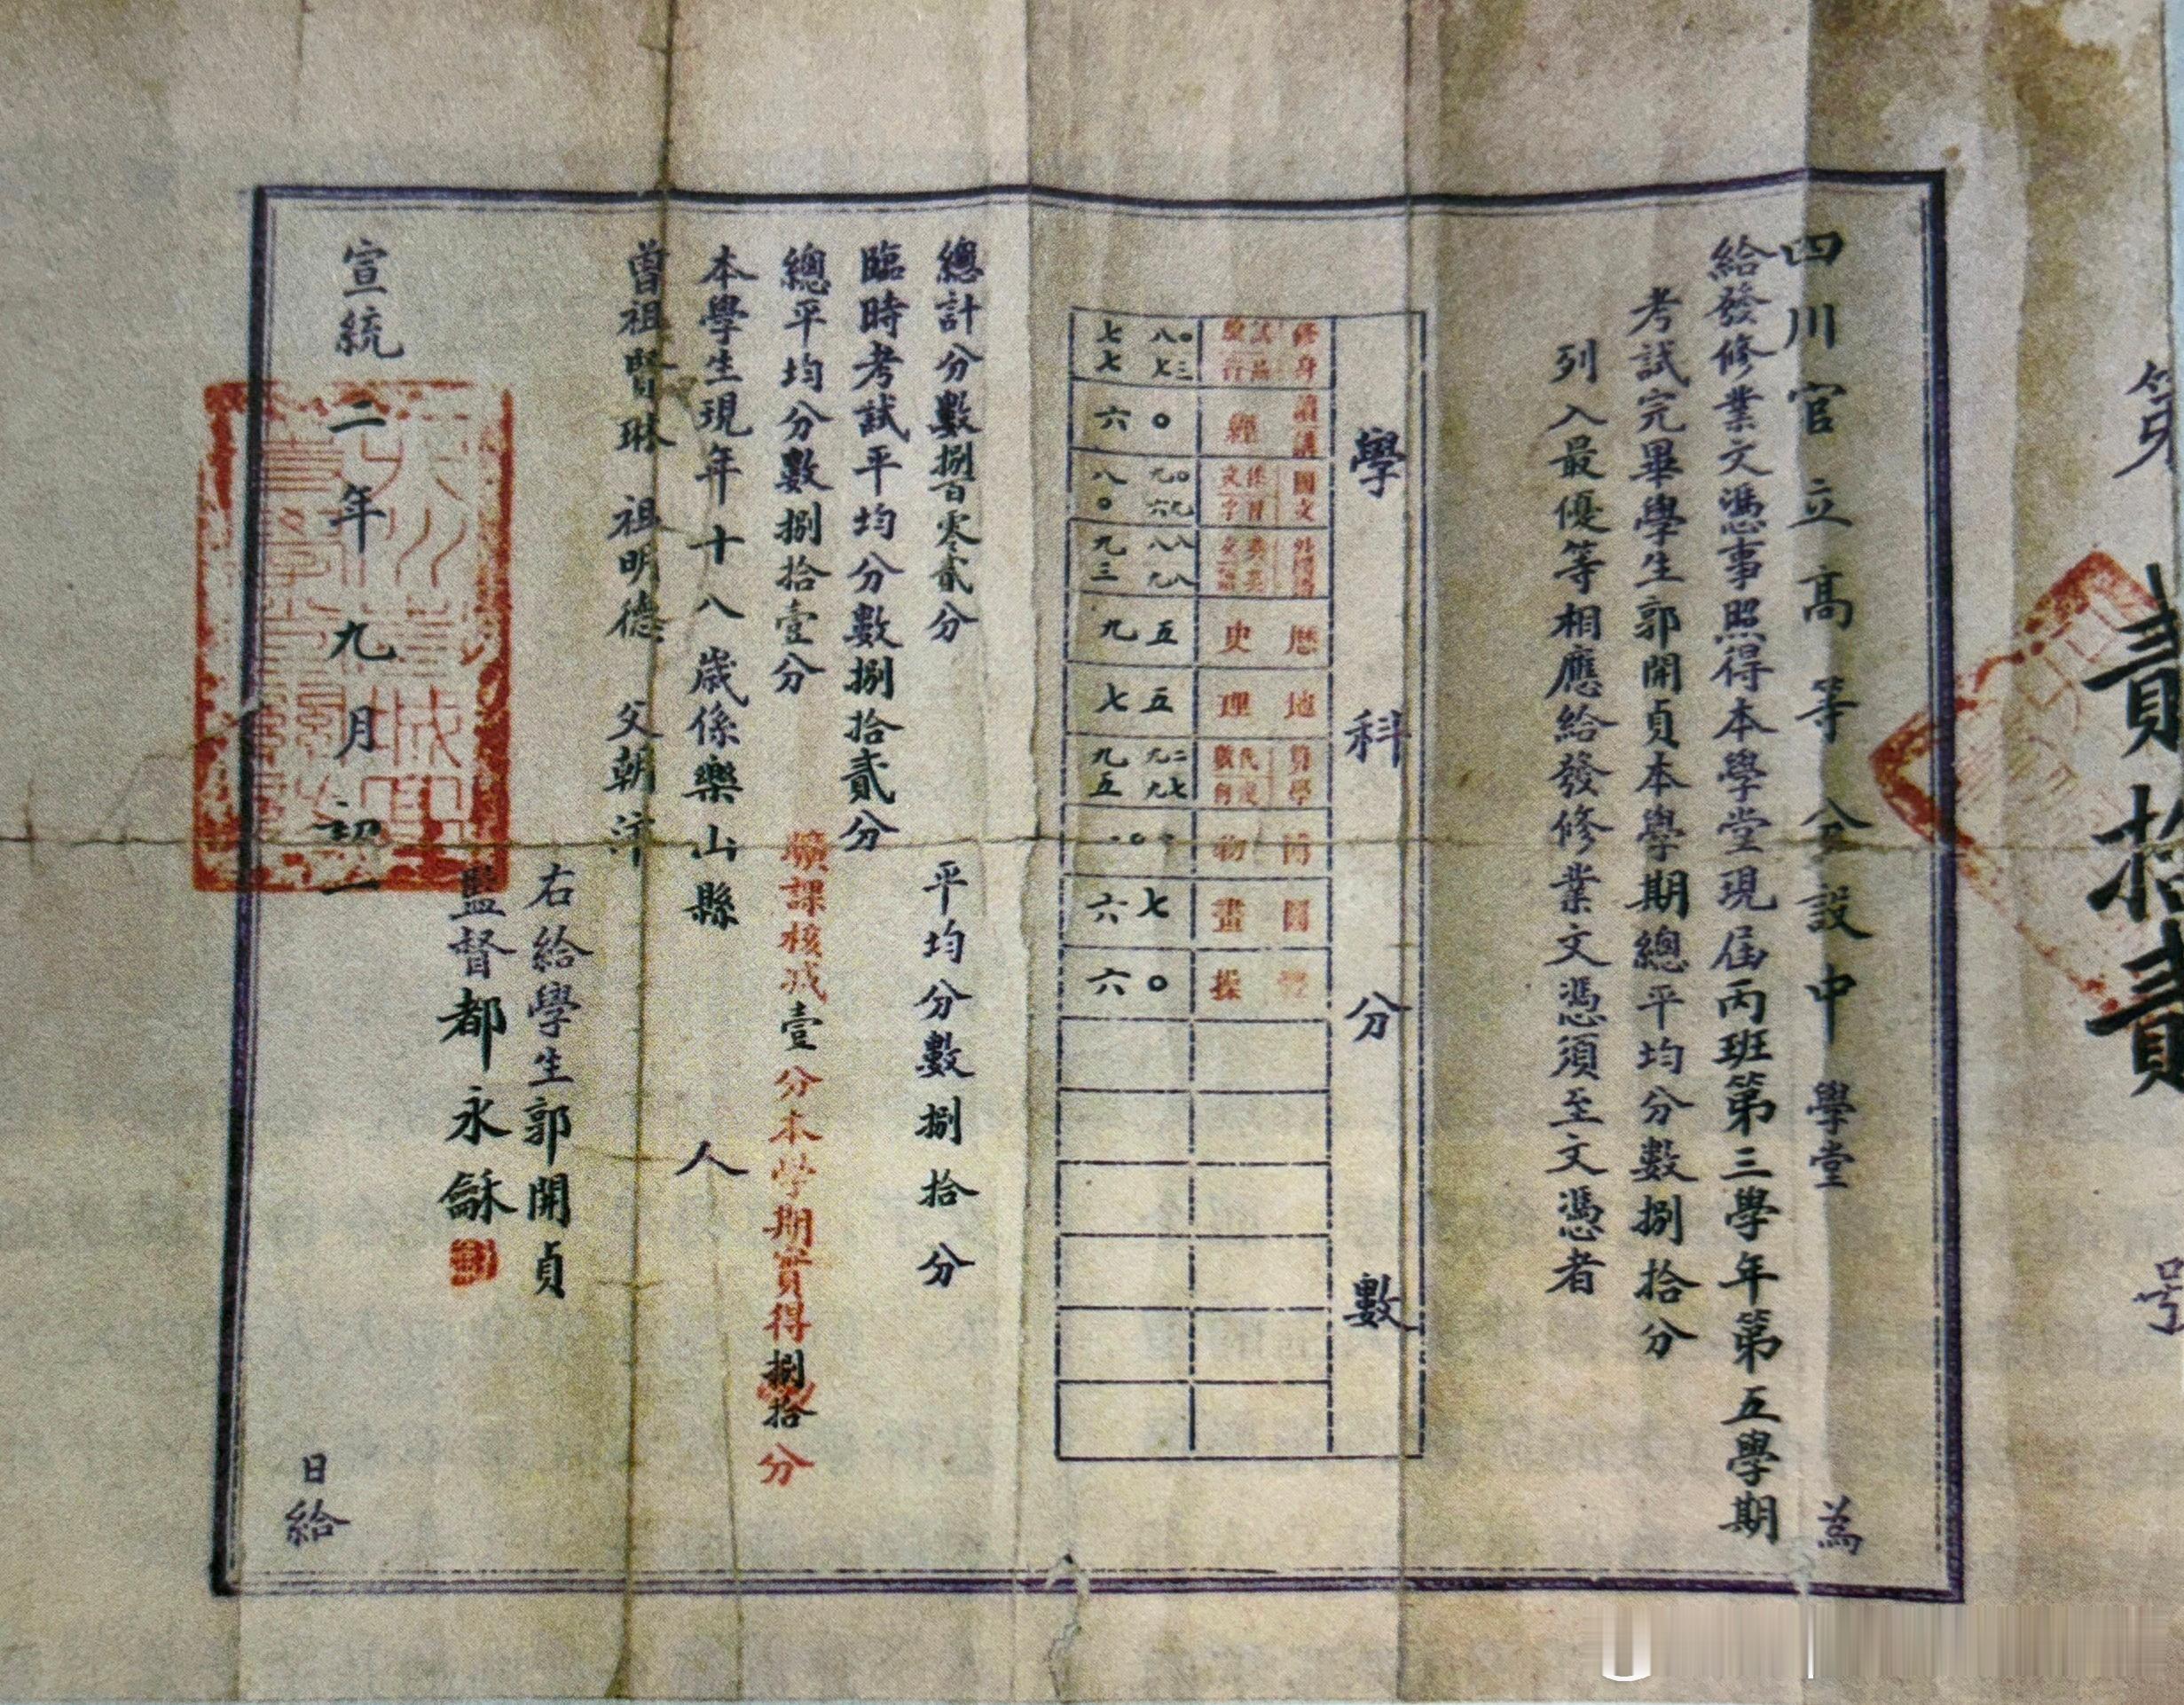 第 貳拾貳 號
四川官立高等分設中學堂 為
給發修業文憑事照得本學堂現屆丙班第三學年第五學期
考試完畢學生郭開貞本學期總平均分數捌拾分
列入最優等相應給發修業文憑須至文憑者
學科分數
修身 試驗 八〇 品行 七三 七七
讀講經 六〇
國文 九〇 六九 文字 八〇
外國語 八八 九八 九三
歷史 九五
地理 七五
算學 代數 九二 幾何 九七 九五
博物
圖畫 六七
體操 六〇
總計分數捌百零貳分 平均分數捌拾分
臨時考試平均分數捌拾貳分
總平均分數捌拾壹分 曠課核減壹分本学期實得捌拾分
本學生現年十八歲係樂山縣人
曾祖賢琳 祖明德 父朝沛
右給學生郭開貞
監督都永龢
宣統二年九月初一日給